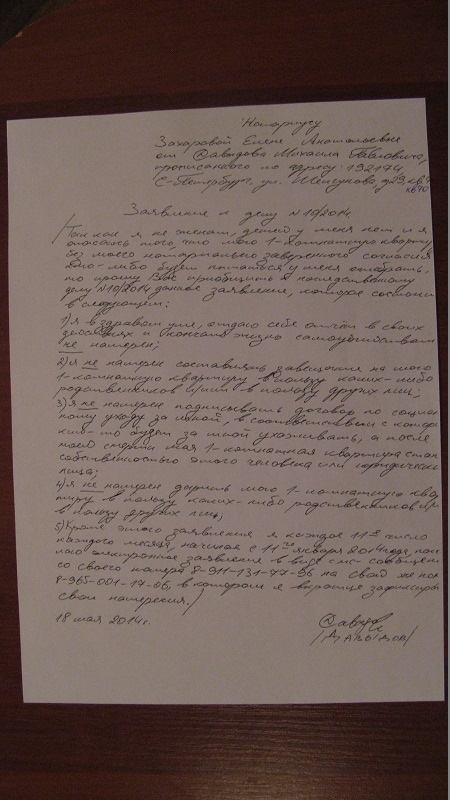 Нотариусу
Захаровой Елене Анатольевне
от Давыдова Михаила Павловича,
прописанного по адресу: 192174
С-Петербург, ул. Шелгунова, д29, кв4
кв70
Заявление к делу N10/2014.
Так как я не женат, детей у меня нет и я
опасаюсь того, что мою 1-комнатную квартиру
без моего нотариально заверенного согласия
кто-либо будет пытаться у меня отобрать,
то прошу Вас приобщить к наследственному
делу N10/2014 данное заявление, которое состоит
в следующем:
1) я в здравом уме, отдаю себе отчёт в своих
действиях и кончать жизнь самоубийством
не намерен;
2) я не намерен составлять завещания на мою
1-комнатную квартиру в пользу каких-либо
родственников и/или в пользу других лиц;
3) я не намерен подписывать договор по социаль
ному уходу за мной, в соответствии с которы
кто-то будет за мной ухаживать, а после
моей смерти моя 1-комнатная квартира стан
собственностью этого человека или юридическо
лица;
4) я не намерен дарить мою 1-комнатную квар
тиру в пользу каких-либо родственников и
в пользу других лиц;
5) Кроме этого заявления я каждое 11-е число
каждого месяца, начиная с 11го января 2014 года, пос
лаю электронное заявление в виде смс-сообщени
со своего номера 8-911-131-77-96 на свой же ном
8-965-001-17-06, в котором я вкратце зафиксиро
свои намерения.
18 мая 2014г.
/Давыдов/